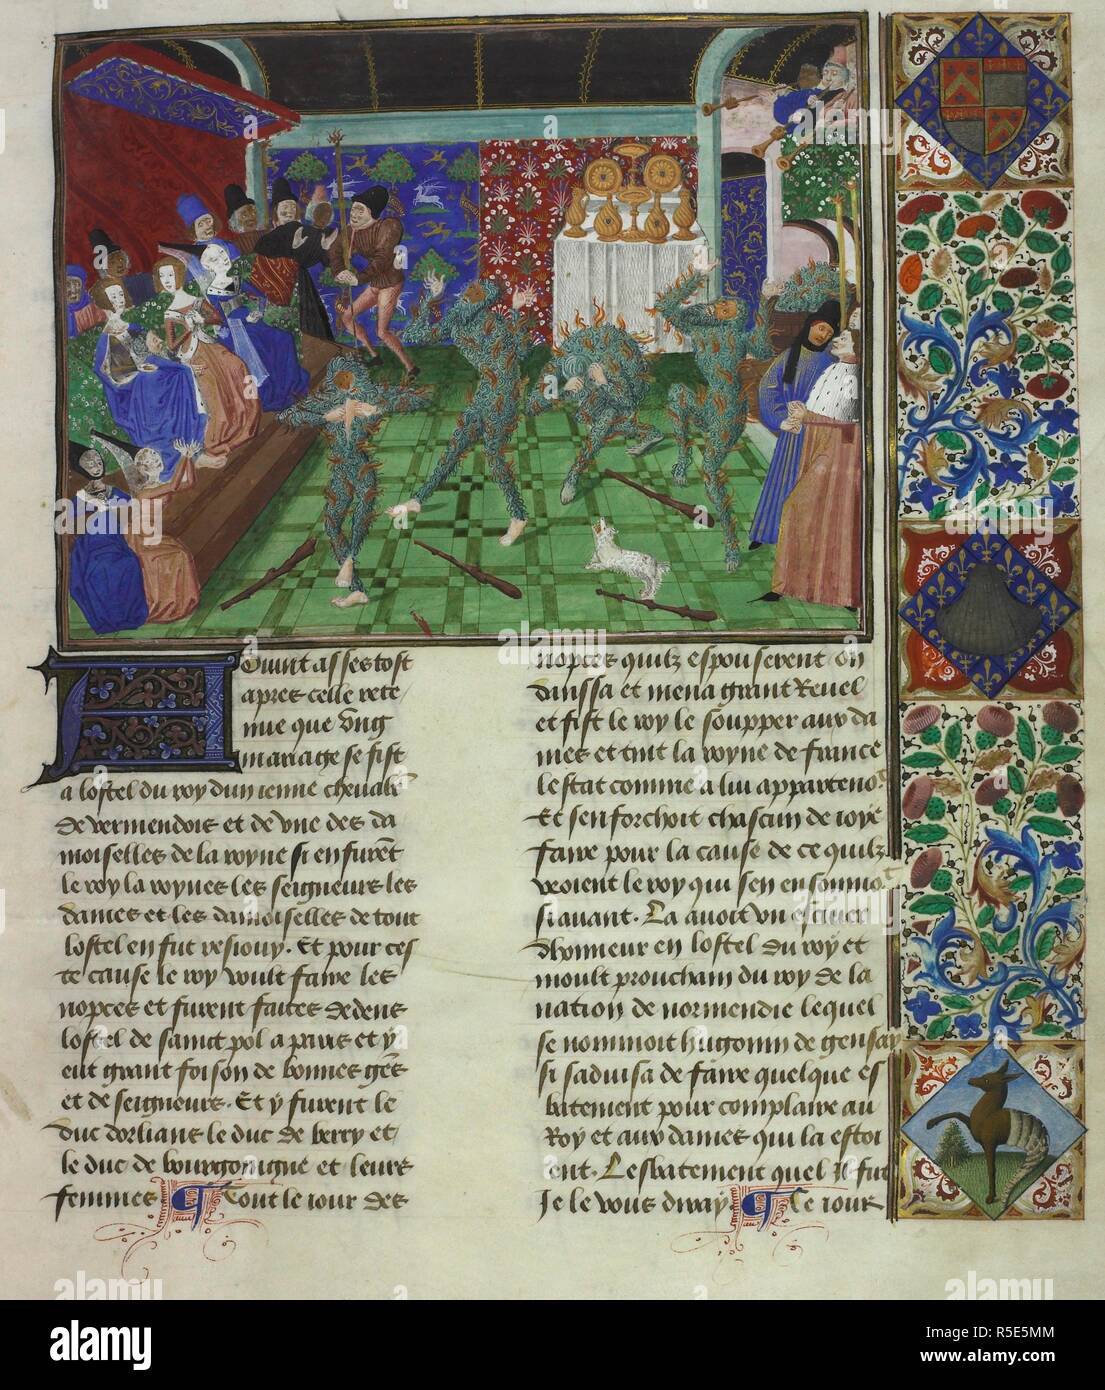 Avint asses tost
apres celle rete
nue que ung
mariage se fist
a lostel du roy dun ienne chevalr̄
de vermendois et de une des da
moiselles de la royne si en furēt
le roy la royne les seigneurs les
dames et les damoiselles de tout
lostel en fut resiouy. Et pour ces
te cause le roy voult faire les
nopces et furent faites dedens
lostel de sainct pol a paris et y
eut grant foison de bonnes gēs
et de seigneurs. Et y furent le
duc dorlians le duc de berry et
le duc de bourgongne et leurs
femmes. Tout le iour des
nopces quilz espouserent on
danssa et mena grant Revel
et fist le roy le soupper aux da
mes et tint la royne de france
lestat comme a lui apparteno
Et sefforchoit chascun de ioye
faire pour la cause de ce quilz
veoient le roy qui sen ensonnio
si avant. La avoit un escuier
dhonneur en lostel du roy et
moult prouchain du roy de la
nation de normendie lequel
se nommoit hugonin de gensay
si sadvisa de faire quelque es
batement pour complaire au
Roy et aux dames qui la estoi
ent. Lesbatement quel il fut
Je le vous diray Le iour
alamy
Image ID: R5E5MM
www.alamy.com